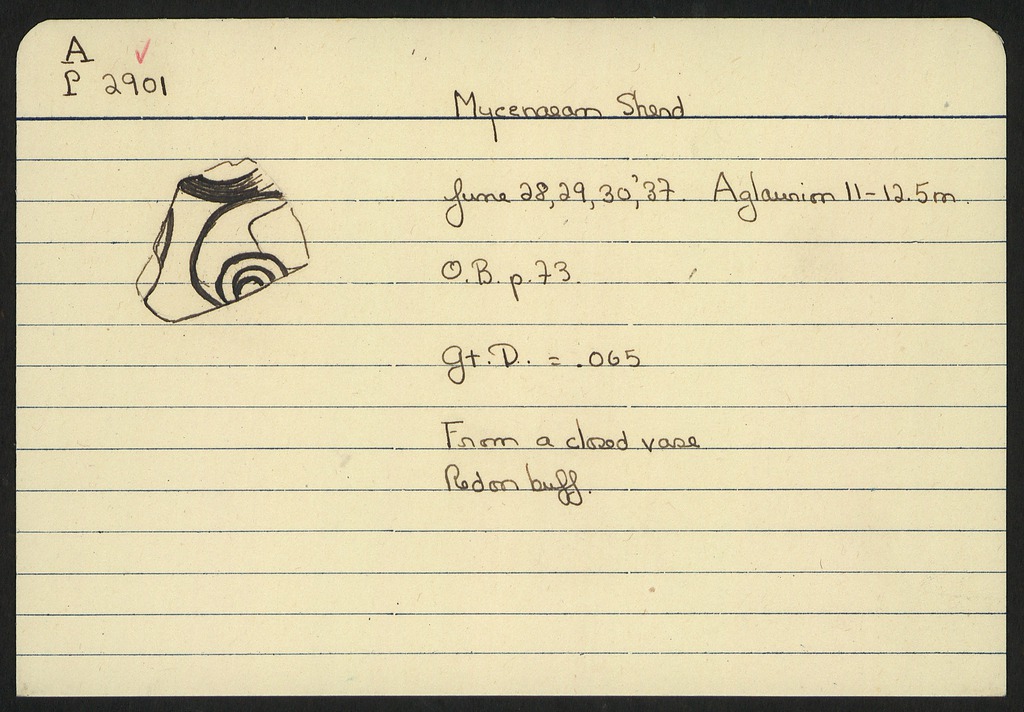 A
P 2901
Mycenaean Sherd
June 28, 29, 30, '37. Aglaurion 11-12.5m.
O.B. p. 73.
Gt. D. = .065
From a closed vase
Red on buff.